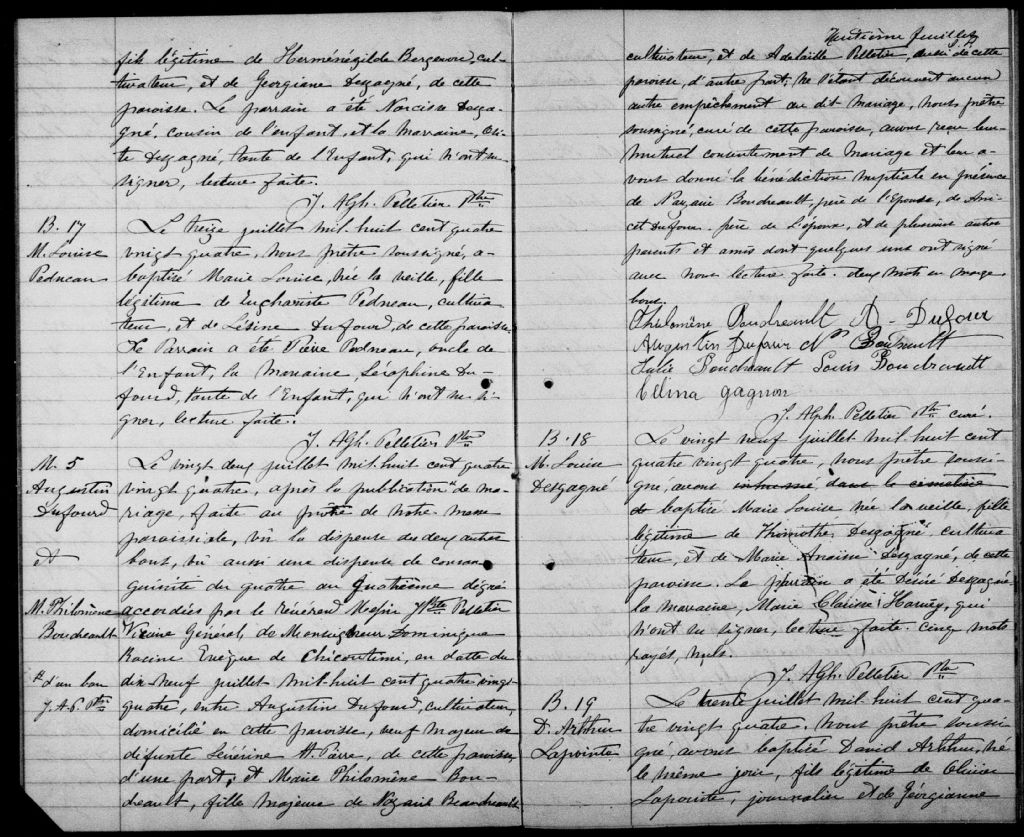 fils légitime de Herménégilde Bergeron, cul-
tivateur, et de Georgiane Desgagné, de cette
paroisse. Le parrain a été Narcisse Desga-
gné, cousin de l'enfant, et la Marraine,
te Desgagné, tante de l'Enfant, qui n'ont su
signer, lecture faite.
J. Alph. Pelletier Ptre
B. 17
M. Louise
Pedneau
Le treize juillet mil huit cent quatre
vingt quatre, nous prêtre soussigné, a-
baptisé Marie Louise, née la veille, fille
légitime de Euchariste Pedneau, cultiva-
teur, et de Lésine Dufourd, de cette paroisse.
Le Parrain a été Pierre Pedneau, oncle de
l'Enfant, la Marraine, Séraphine Du-
fourd, tante de l'Enfant, qui n'ont su si-
gner, lecture faite.
J. Alph. Pelletier Ptre
M. 5
Augustin
Dufourd
et
M. Philomène
Boudreault
# d'un ban
J. A. P. Ptre
Le vingt deux juillet mil huit cent quatre
vingt quatre, après la publication # de ma-
riage, faite au prône de notre messe
paroissiale, vu la dispense des deux autres
bans, vu aussi une dispense de consan
guinité du quatre au quatrième dégré
accordées par le révérend Messire Pelletier
Vicaire Général, de Monseigneur Dominique
Racine Evêque de Chicoutimi, en datte du
dix-neuf juillet mil huit cent quatre vingt
quatre, entre Augustin Dufourd, cultivateur,
domicilié en cette paroisse, veuf majeur de
défunte Sévérine St. Pierre, de cette paroisse,
d'une part; et Marie Philomène Bou-
dreault, fille majeure de Nazaire Beaudreault
Huitième feuillet
cultivateur, et de Adelaille Pelletier, aussi de cette
paroisse, d'autre part; Ne s'étant découvert aucun
autre empêchement au dit mariage, nous prêtre
soussigné, curé de cette paroisse, avons reçu leur
mutuel consentement de Mariage et leur a-
vons donné la bénédiction nuptiale en présence
de Nazaire Boudreault, père de l'Epouse, de Ani-
cet Dufour père de l'époux, et de plusieurs autres
parents et amis dont quelques uns ont signé
avec nous lecture faite. deux mots en marge
bons.
Philomène Boudreault A. Dufour
Augustin Dufour Boudreault
Julie Boudreault Louis Boudreault
Edina gagnon
J. Alph. Pelletier Ptre curé.
B. 18
M. Louise
Desgagné
Le vingt neuf juillet mil huit cent
quatre vingt quatre, nous prêtre soussi-
gné, avons inhumé dans le cimetière
de baptisé Marie Louise née la veille, fille
légitime de Thimothé Desgagné cultiva
teur, et de Marie Anaïse Desgagné, de cette
paroisse. Le parrain a été Désiré Desgagné
la marraine, Marie Harvey, qui
n'ont su signer, lecture faite. cinq mots
rayés, nuls.
J. Alph. Pelletier Ptre
B. 19
D. Arthur
Lapointe
Le trente juillet mil huit cent qua-
tre vingt quatre. Nous prêtre soussi-
gné, avons baptisé David Arthur, né
le même jour, fils légitime de
Lapointe, journalier et de Géorgianne